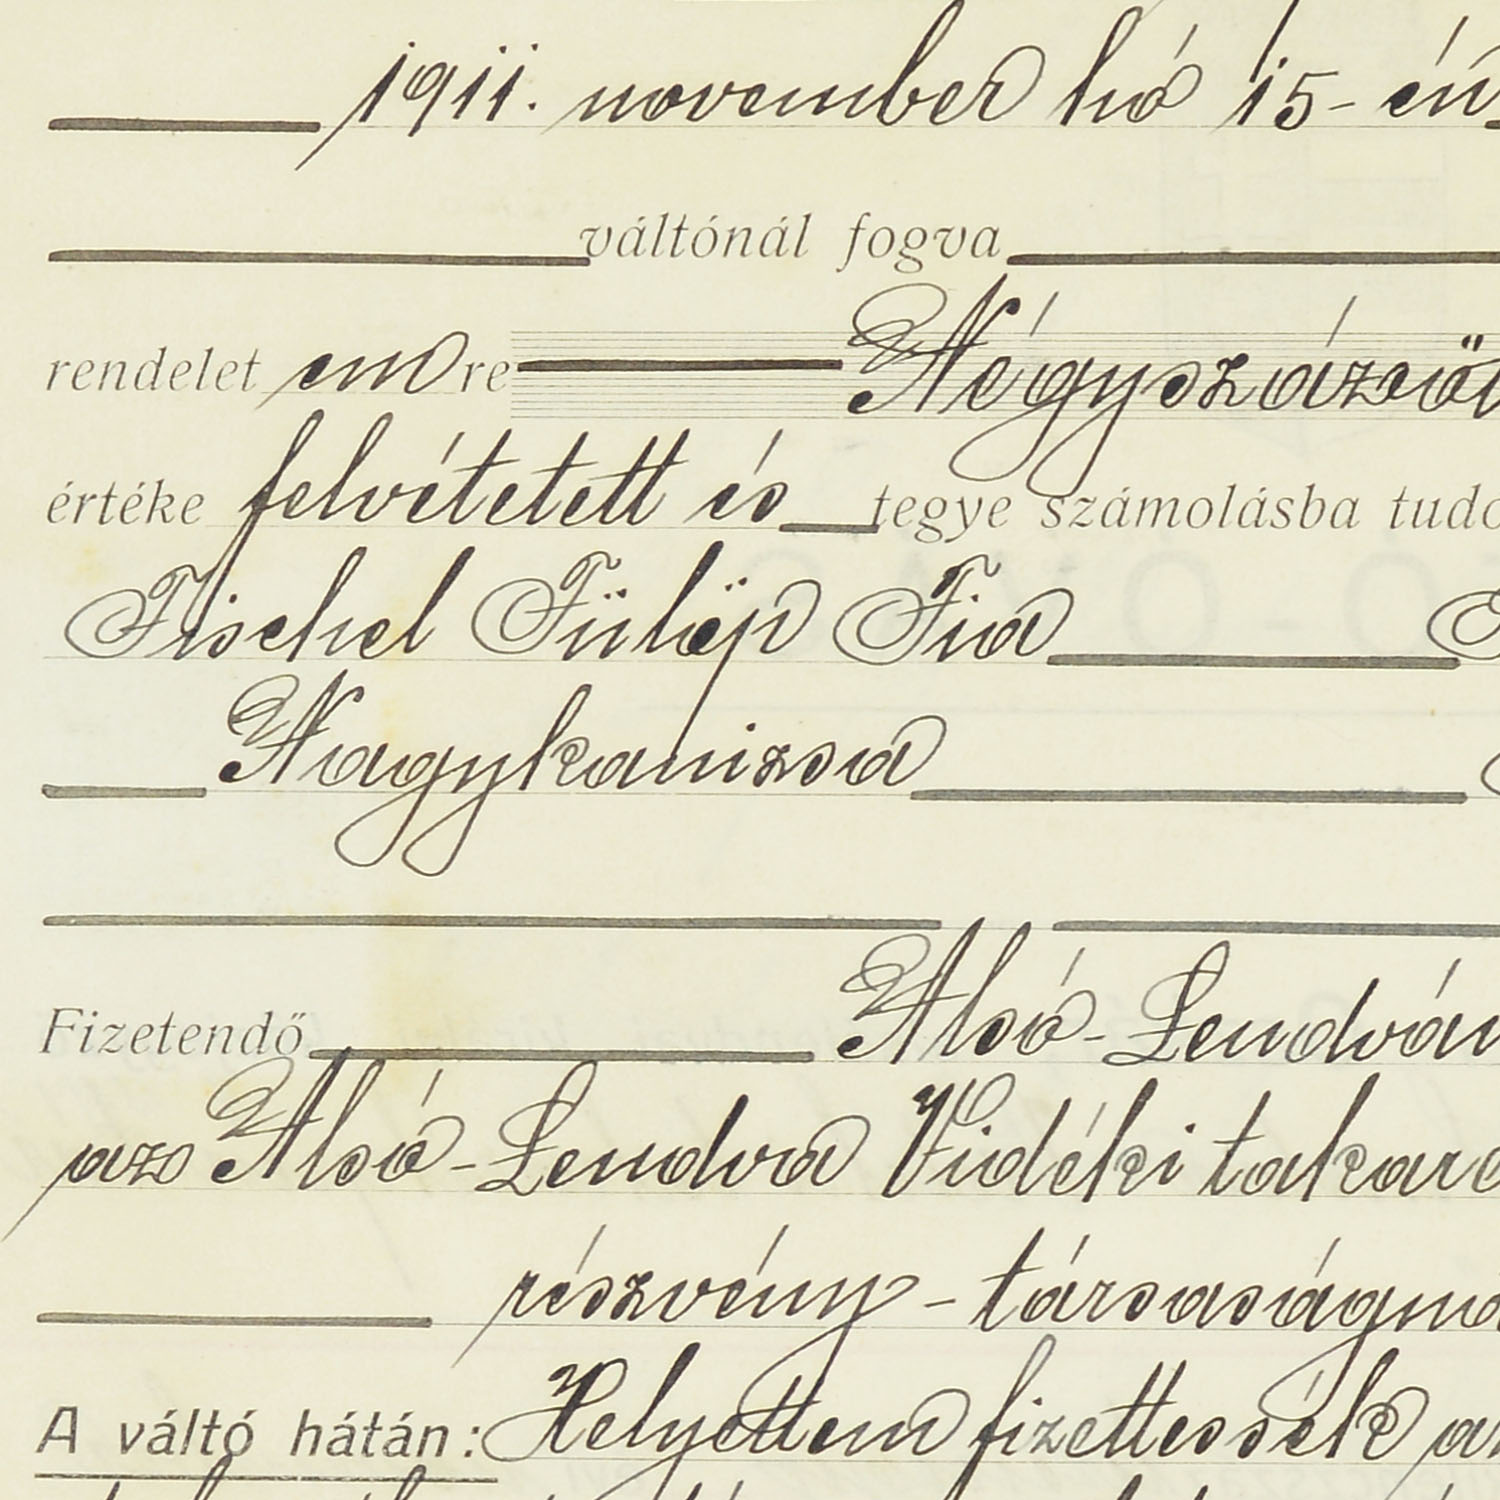 1911. november hó 15-én
váltónál fogva
rendelet em re Négyszázöt
értéke felvétetett és tegye számolásba tudo
Fischel Fülöp Fia
Nagykanizsa
Fizetendő Alsó-Lendván
az Alsó-Lendva Vidéki takaré
részvény-társaságná
A váltó hátán: Helyettem fizettessék a